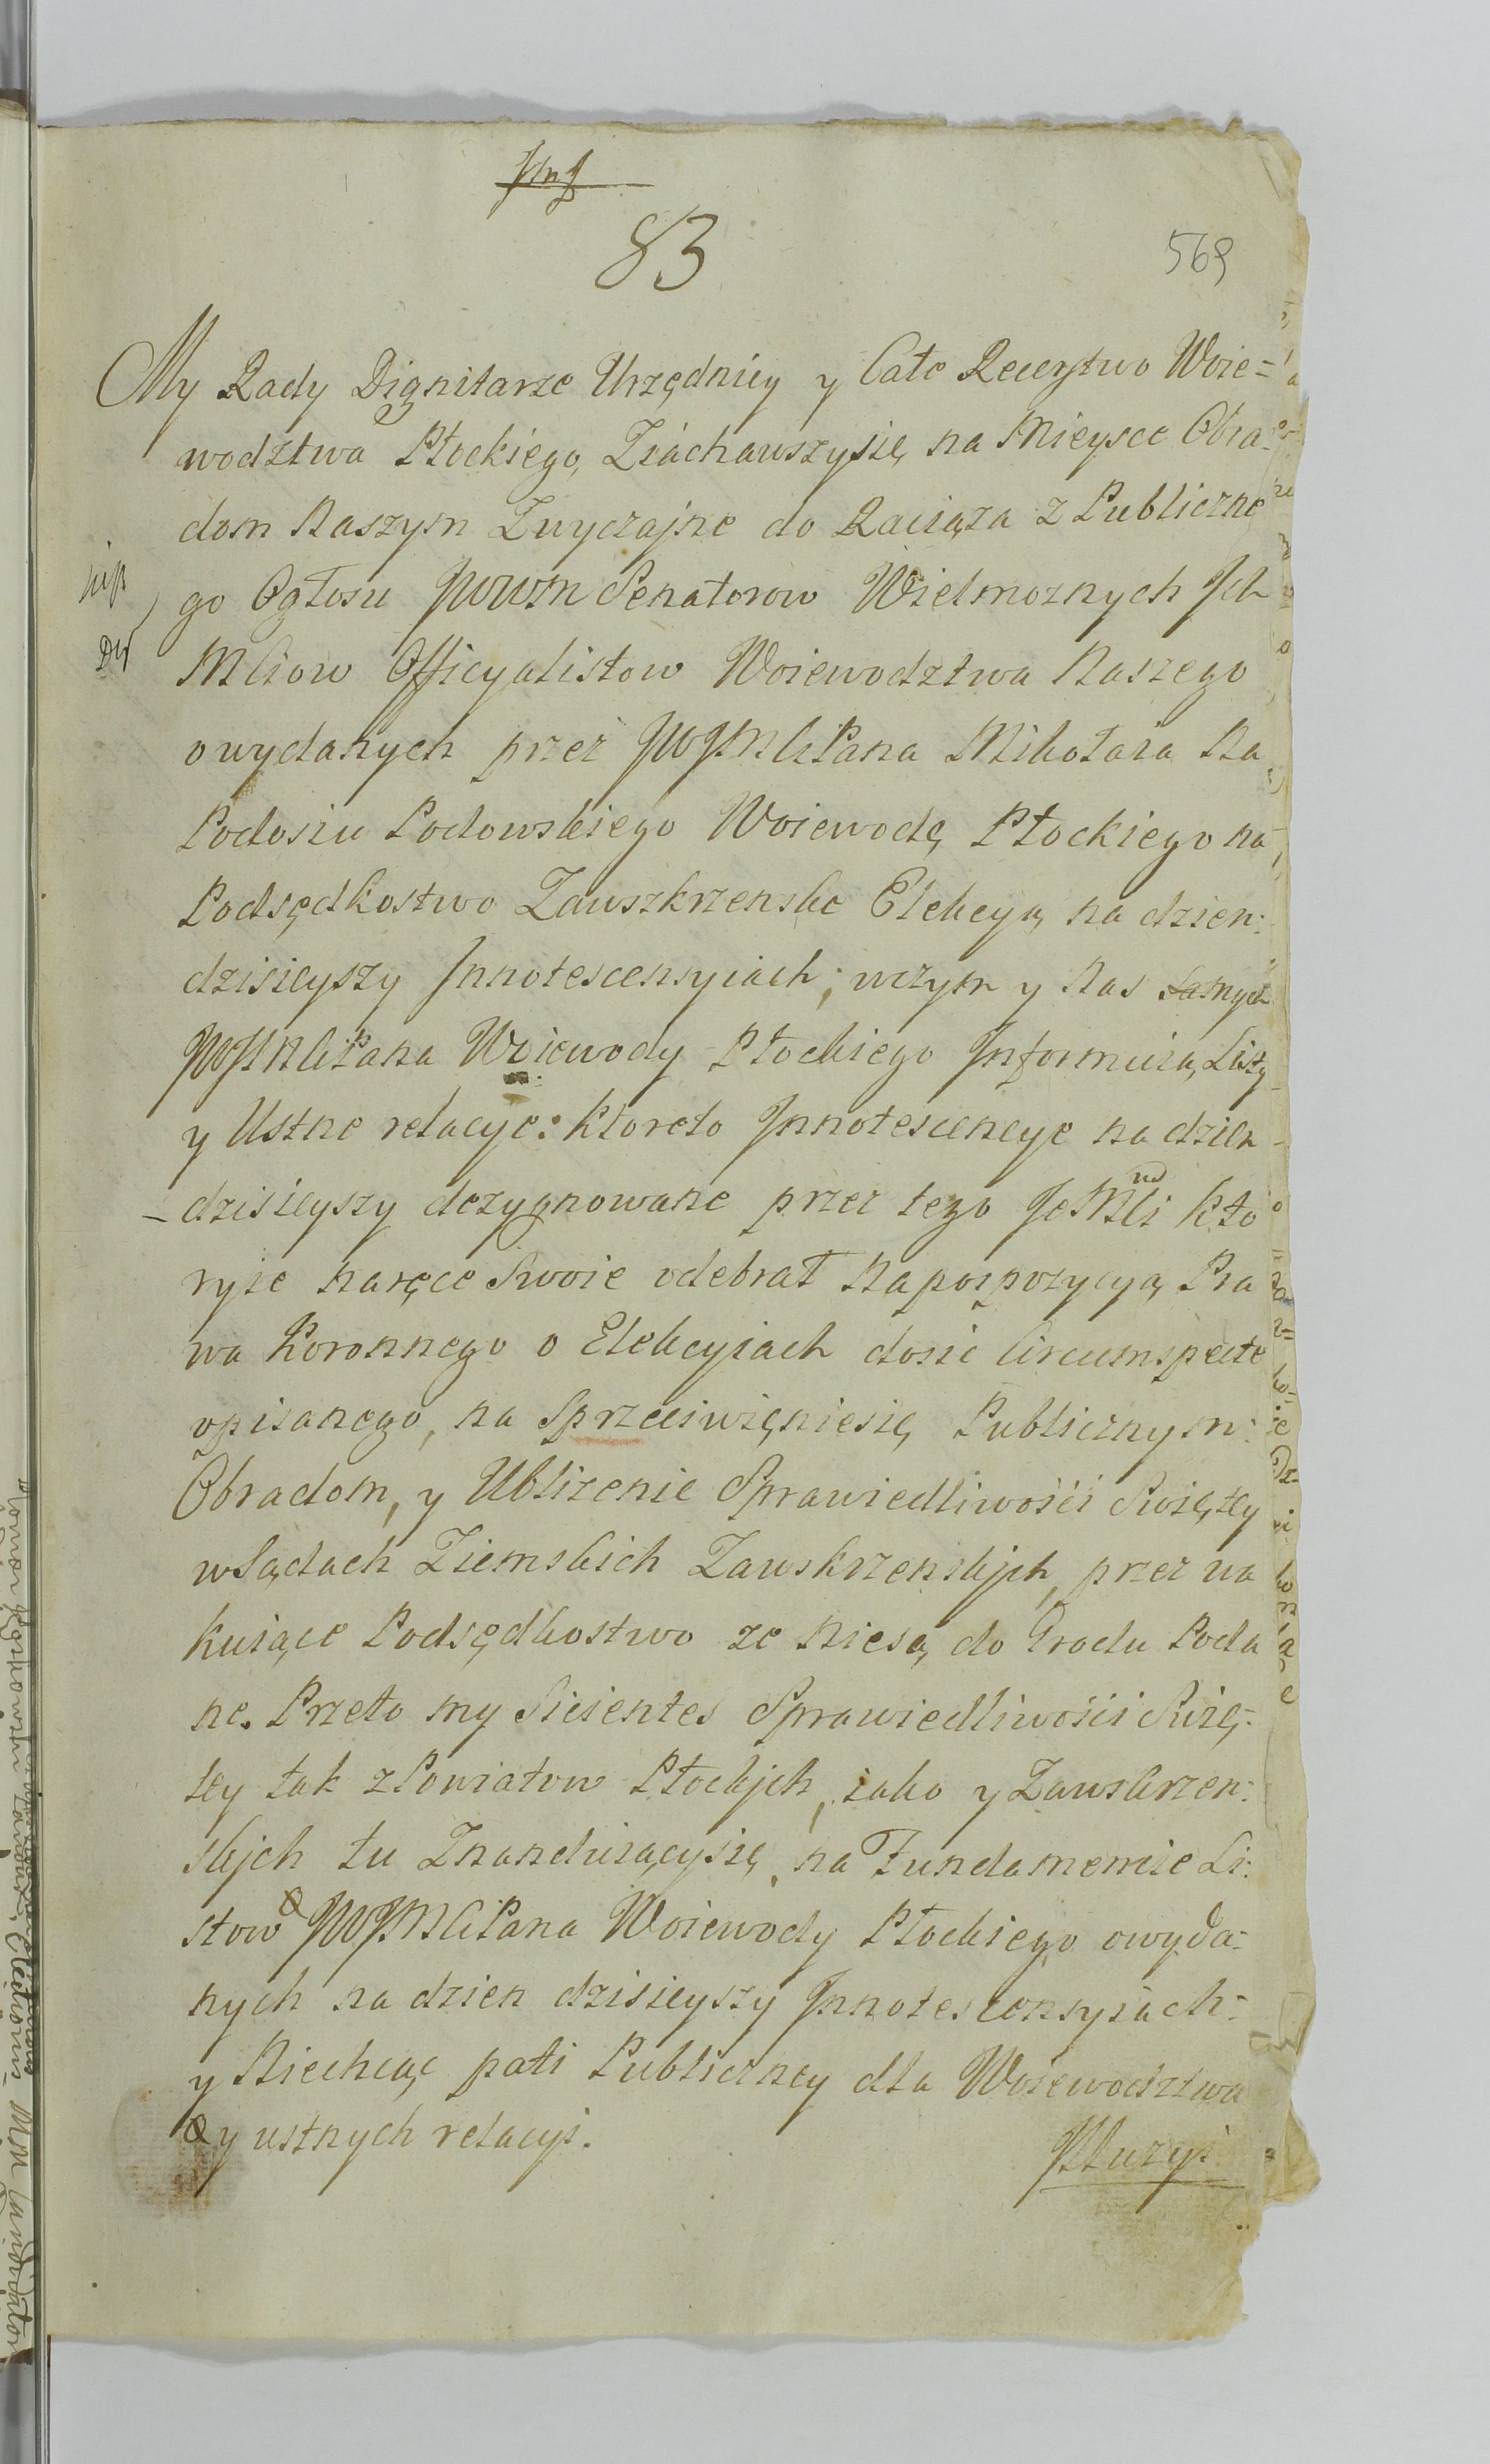 83
569
My Rady Dignitarze Urzędnicy y Całe Rycerstwo Woie=
wodztwa Płockiego, Ziachawszysię na Mieysce Obra-
dom Naszym Zwyczajne do Raciąża z Publiczne
go Ogłosu JWWm Senatorow Wielmoznych Ich
Mciow Officyalistow Woiewodztwa Naszego
o wydanych przez JWJMCiPana Mikołaia Na
Podosiu Podowskiego Woiewodę Płockiego na
Podsędkostwo Zawszkrzenske Elekcyą na dzien:
dzisieyszy Innotescensyiach; wczym y Nas samych
JWJMCiPana Woiewody Płockiego Informuią Listy
y Ustne relacye: Ktoreto Innotescencye na dzien
dzisieyszy dezygnowane przez tego JeMCi Kto
ryie naręce Swoie odebrał Na pospozycyą Pra
wa Koronnego o Elekcyiach dosić Circumspecte
opisanego, na Sprzeciwięniesię Publicznym:
Obradom, y Ublizenie Sprawiedliwośći Swiętey
wSądach Ziemskich Zawskrzenskjch, przez wa
kuiące Podsędkostwo ze Niesą do Grodu Poda
ne. Przeto my Sicientes Sprawiedliwośći Swię-
tey tak z Powiatow Płockjch, iako y Zawskrzen:
skjch tu Znanduiącysię, na Fundamencie Li:
stow JWJMCiPana Woiewody Płockiego owyda:
nych na dzien dzisieyszy Innotescensyiach:
y Niechcąc pati Publiczney dla Woiewodztwa
y ustnych relacyi.